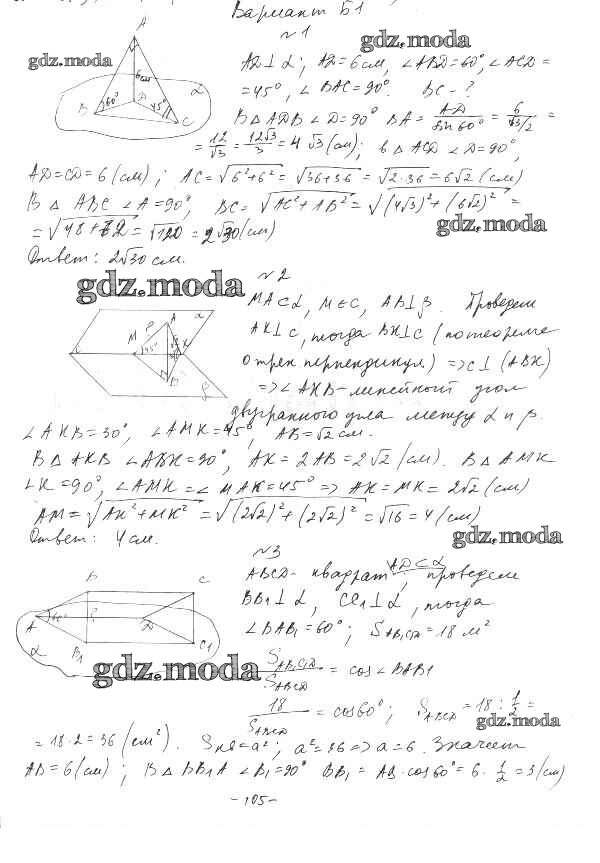 Вариант Б1
N1
gdz.moda
gdz.moda
A
6см
B 60° D 45° C α
AD⊥α; AD=6см, ∠ABD=60°, ∠ACD=
=45°, ∠BAC=90°. BC-?
В △ADB ∠D=90° BA = AD/sin60° = 6/√3/2 =
= 12/√3 = 12√3/3 = 4√3 (см); в △ACD ∠D=90°,
AD=CD=6(см); AC=√6²+6² = √36+36 = √2·36 = 6√2 (см)
В △ABC ∠A=90°, BC=√AC²+AB² = √(4√3)²+(6√2)² =
= √48+72 = √120 = 2√30 (см)
gdz.moda
Ответ: 2√30 см.
gdz.moda
N2
MA⊂α, M∈C, AB⊥β. Проведем
AK⊥C, тогда BK⊥C (по теореме
о трех перпендикул) => C⊥(ABK)
=> ∠AKB - линейный угол
двугранного угла между α и β.
∠AKB=30°, ∠AMK=45°, AB=√2 см.
В △AKB ∠ABK=90°, AK=2AB=2√2 (см). В △AMK
∠K=90°, ∠AMK=∠MAK=45° => AK=MK=2√2 (см)
AM=√AK²+MK² = √(2√2)²+(2√2)² = √16=4 (см)
gdz.moda
Ответ: 4см.
N3
B C
A 60° D
α B1 C1
ABCD- квадрат, AD⊂α, проведем
BB1⊥α, CC1⊥α, тогда
∠BAB1=60°; SAB1C1D=18 м²
gdz.moda
SAB1C1D/SABCD = cos∠BAB1
18/SABCD = cos60°; SABCD=18:1/2=
gdz.moda
=18·2=36 (см²). Sкв=a²; a²=36=>a=6. Значит
AB=6(см); В △BB1A ∠B1=90° BB1=AB·cos60°=6·1/2=3(см)
-105-